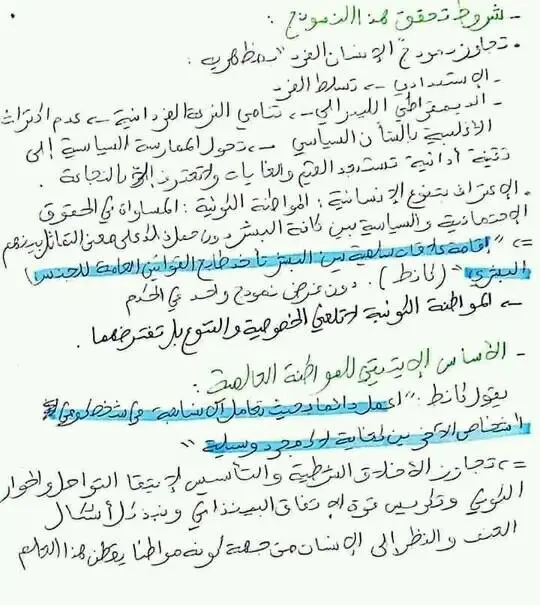 - شروط تحقق هذا النموذج :
• تجاوز نموذج "الإنسان الفرد" بمظهريه :
- الإستبدادي -> تسلط الفرد
- الديمقراطي الليبرالي -> تنامي النزعة الفردانية -> عدم اكتراث
الأغلبية بالشأن السياسي -> تحول الممارسة السياسية إلى
تقنية أداتية تستبعد القيم والغايات ولا تعترف إلا بالنجاعة .
• الإعتراف بتنوع الإنسانية : المواطنة الكونية : المساواة في الحقوق
الإجتماعية والسياسية بين كافة البشر دون حمل ذلك على معنى التماثل بينهم
=> "إقامة علاقات سلمية بين البشر تأخذ طابع القوانين العامة للجنس
البشري" (كانط) . دون فرض نموذج واحد في الحكم
-> المواطنة الكونية لا تلغي الخصوصية والتنوع بل تفترضهما .
- الأساس الإيتيقي للمواطنة العالمية :
يقول كانط : "اعمل دائما بحيث تعامل الإنسانية في شخصك وفي
أشخاص الآخرين كغاية لا كمجرد وسيلة"
=> تجاوز الأخلاق الشرطية والتأسيس لإيتيقا التواصل والحوار
الكوني وتكريس قوة الإتفاق البينذاتي ونبذ كل أشكال
العنف والنظر إلى الإنسان من جهة كونه مواطنا يقطن هذا العالم